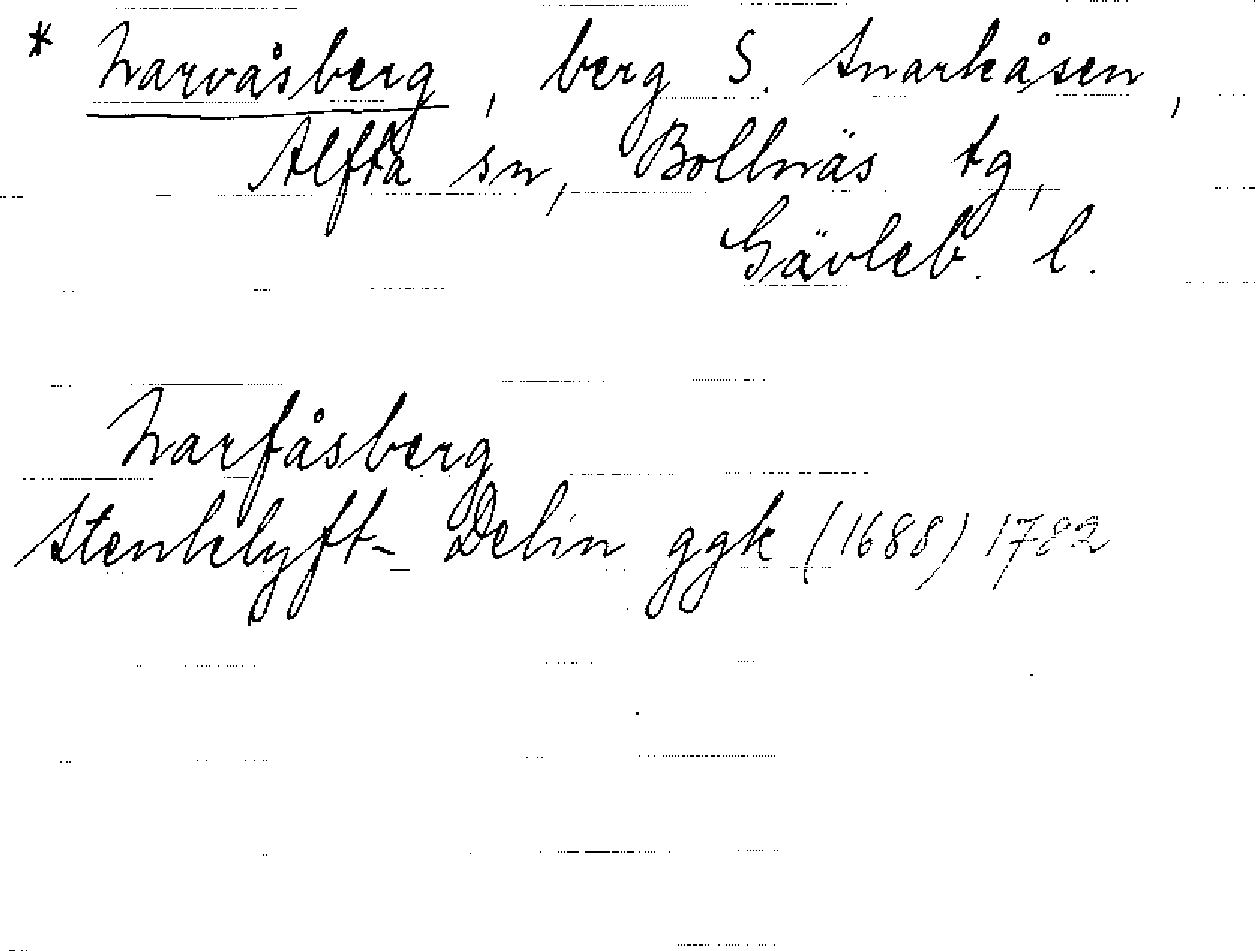 * Narvåsberg, berg S. Snarkåsen,
Alfta sn, Bollnäs tg,
Gävleb. l.
Narfåsberg
Stenklyft- Delin ggk (1688) 1782